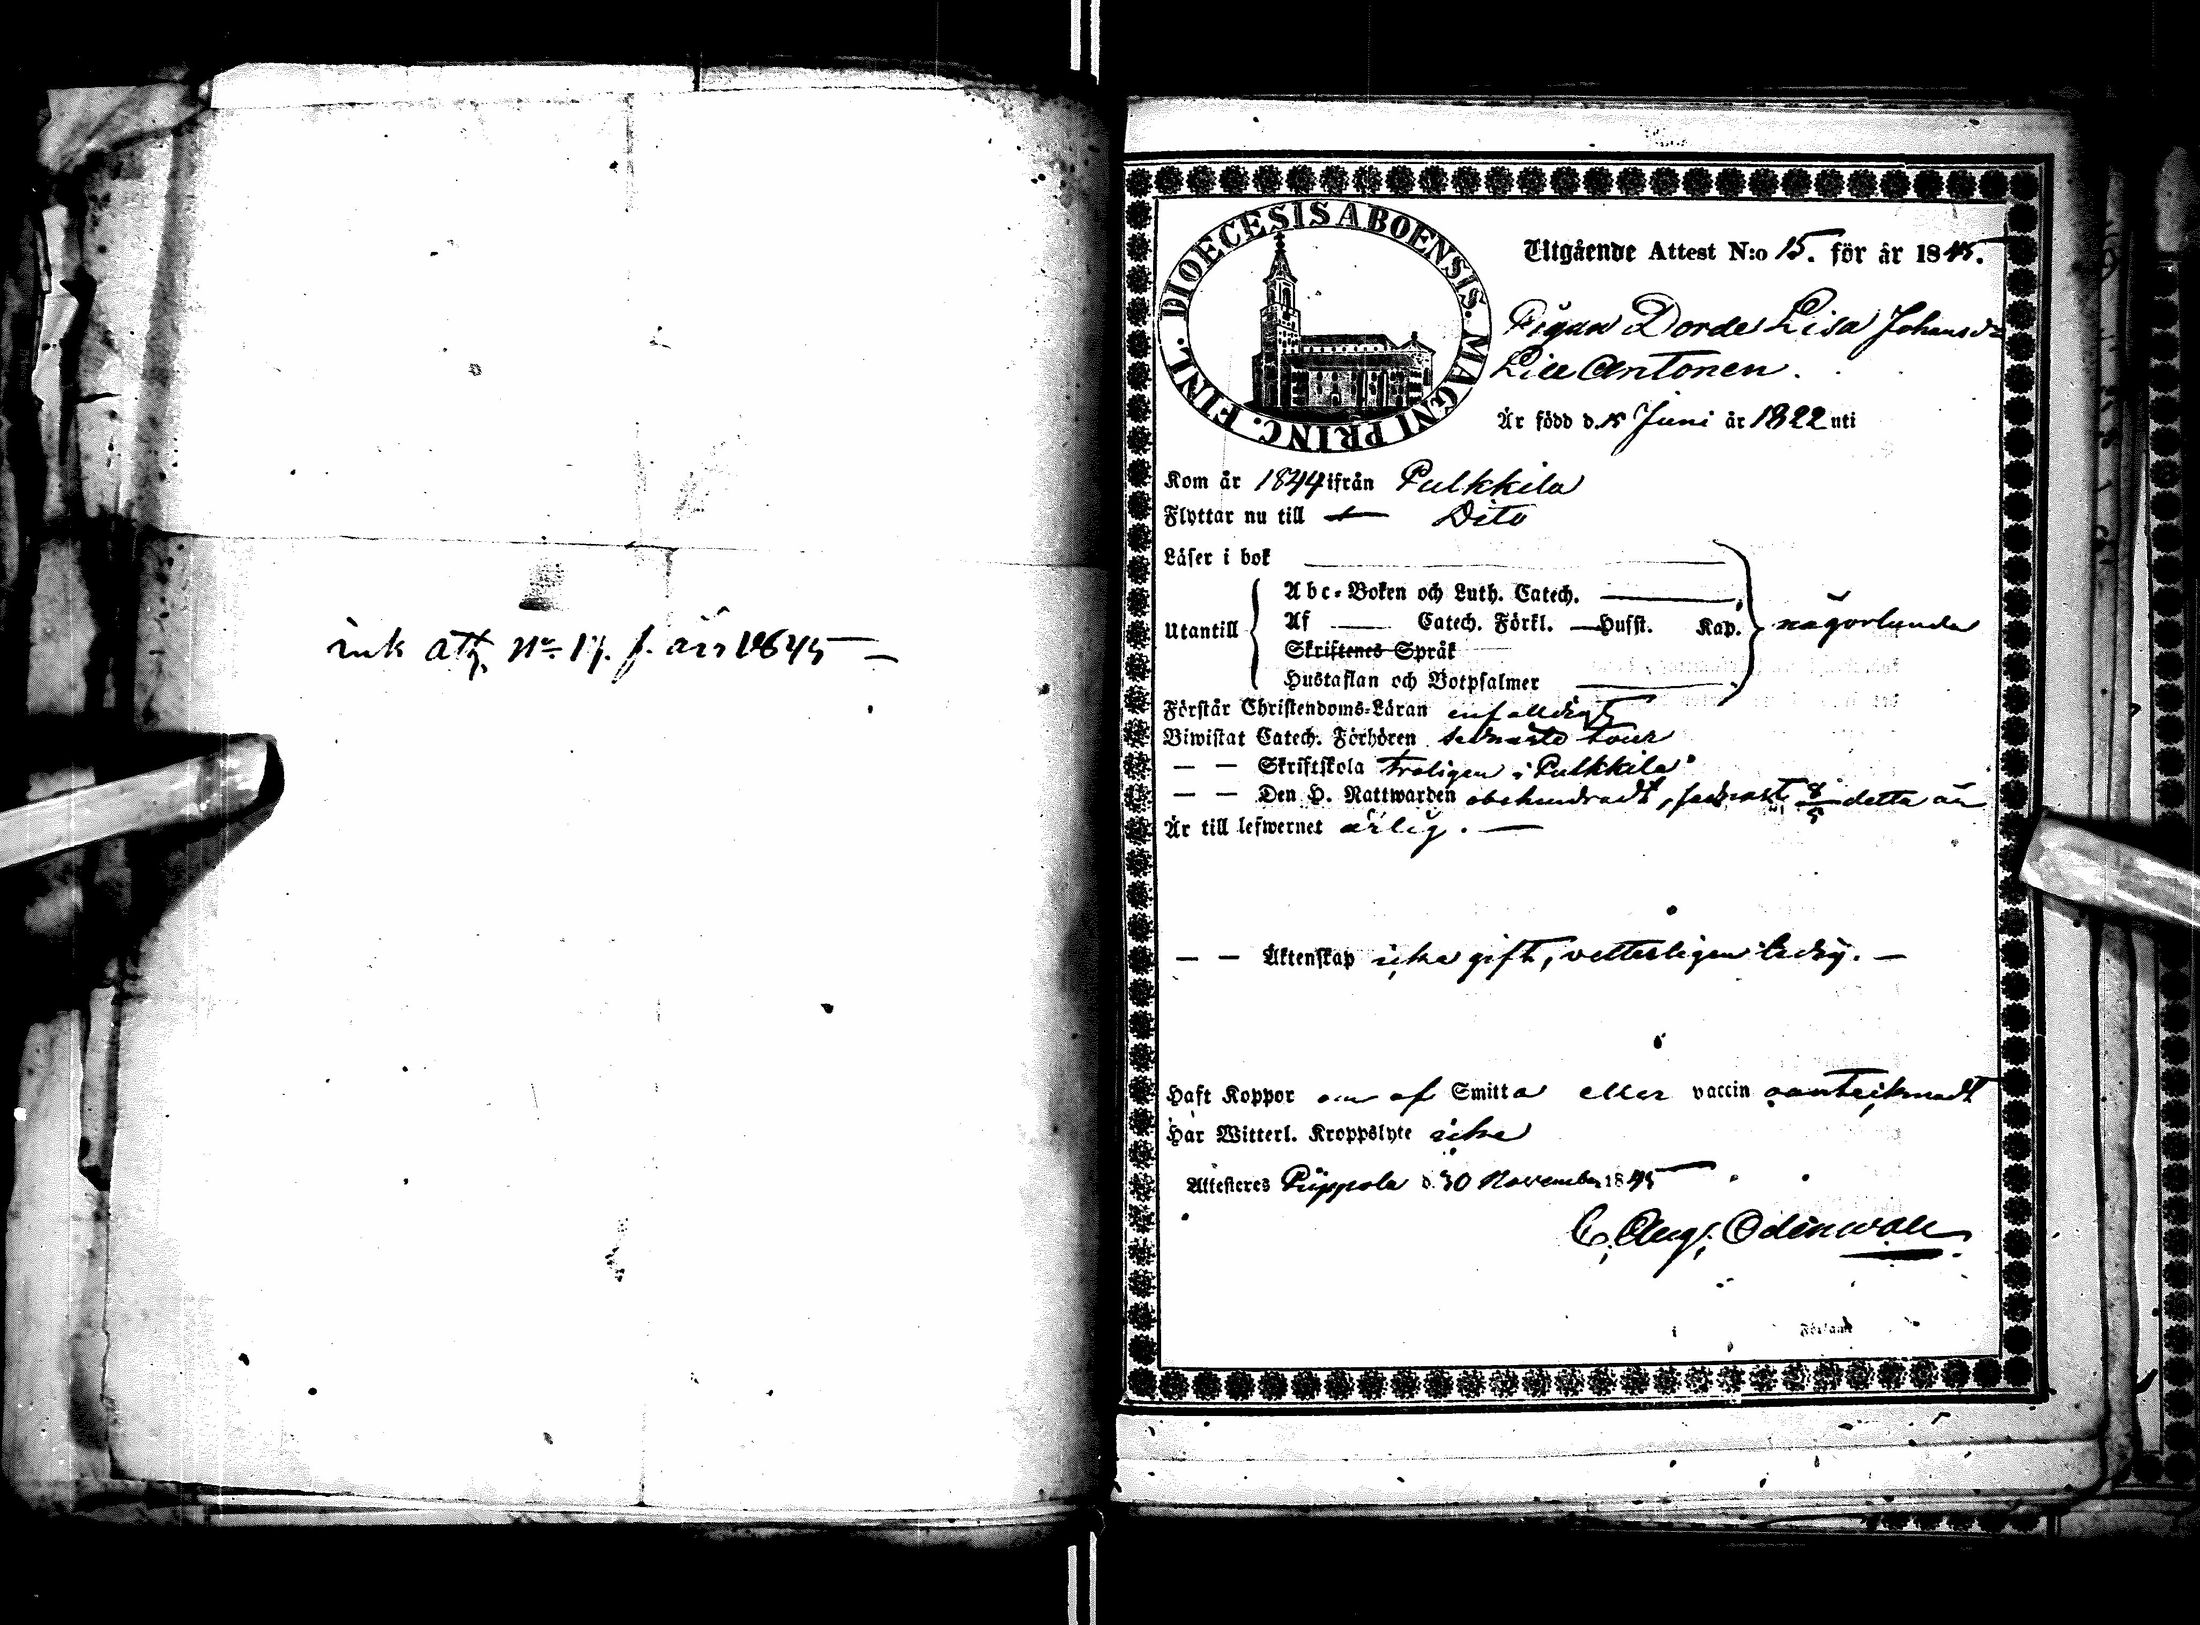 ink att. No 17. f. års 1845
DIOECESIS ABOENSIS. MAGNI PRINC. FINL.
Utgående Attest N:o 15. för år 1845.
Pigan Dorde Lisa Johansd:r
Lill Antonen.
Är född d. 15 Juni år 1822 nti
Kom år 1844 ifrån Pulkkila
Flyttar nu till Dito
Läser i bok
Abc-Boken och Luth. Catech.
Utantill Af Catech. Förkl. Husst. Kap. någorlunda
Skriftenes Språk
Hustaflan och Botpsalmer
Förstår Christendoms-Läran enfaldigt
Biwistat Catech. Förhören senaste
— — Skriftskola troligen i Pulkkila
— — Den H. Nattwarden obehindradt, senast 8/5 detta år
Är till lefwernet ärlig. —
— — Äktenskap icke gift, vetterligen ledig. —
Haft Koppor om af Smitta eller vaccin oantecknadt
Har Witterl. Kroppslyte icke
Attesteres Piippola d. 30 November 1845
C. Aug. Odenwall